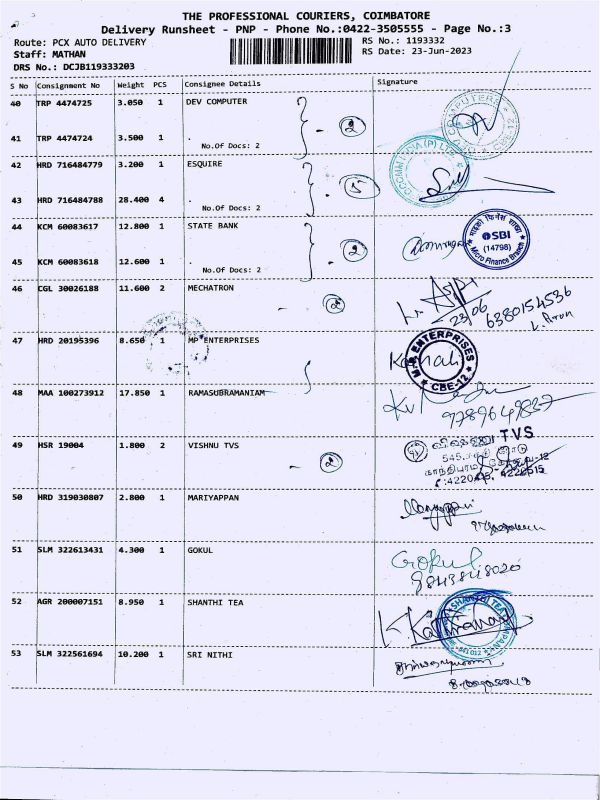 THE PROFESSIONAL COURIERS, COIMBATORE
Delivery Runsheet - PNP - Phone No.:0422-3505555 - Page No.:3
Route: PCX AUTO DELIVERY RS No.: 1193332
Staff: MATHAN RS Date: 23-Jun-2023
DRS No.: DCJB119333203
S No Consignment No Weight PCS Consignee Details Signature
40 TRP 4474725 3.050 1 DEV COMPUTER
2
41 TRP 4474724 3.500 1 .
No.Of Docs: 2
42 HRD 716484779 3.200 1 ESQUIRE
5
43 HRD 716484788 28.400 4 .
No.Of Docs: 2
44 KCM 60083617 12.800 1 STATE BANK
2
SBI
(14798)
Micro Finance Branch
45 KCM 60083618 12.600 1 .
No.Of Docs: 2
46 CGL 30026188 11.600 2 MECHATRON
2
23/06
6380154536
47 HRD 20195396 8.650 1 MP ENTERPRISES
ENTERPRISES
CBE-12
48 MAA 100273912 17.850 1 RAMASUBRAMANIAM
9789649837
49 HSR 19004 1.800 2 VISHNU TVS
2
TVS
50 HRD 319030807 2.800 1 MARIYAPPAN
51 SLM 322613431 4.300 1 GOKUL
Gokul
9843848020
52 AGR 200007151 8.950 1 SHANTHI TEA
SHANTHI TEA
53 SLM 322561694 10.200 1 SRI NITHI